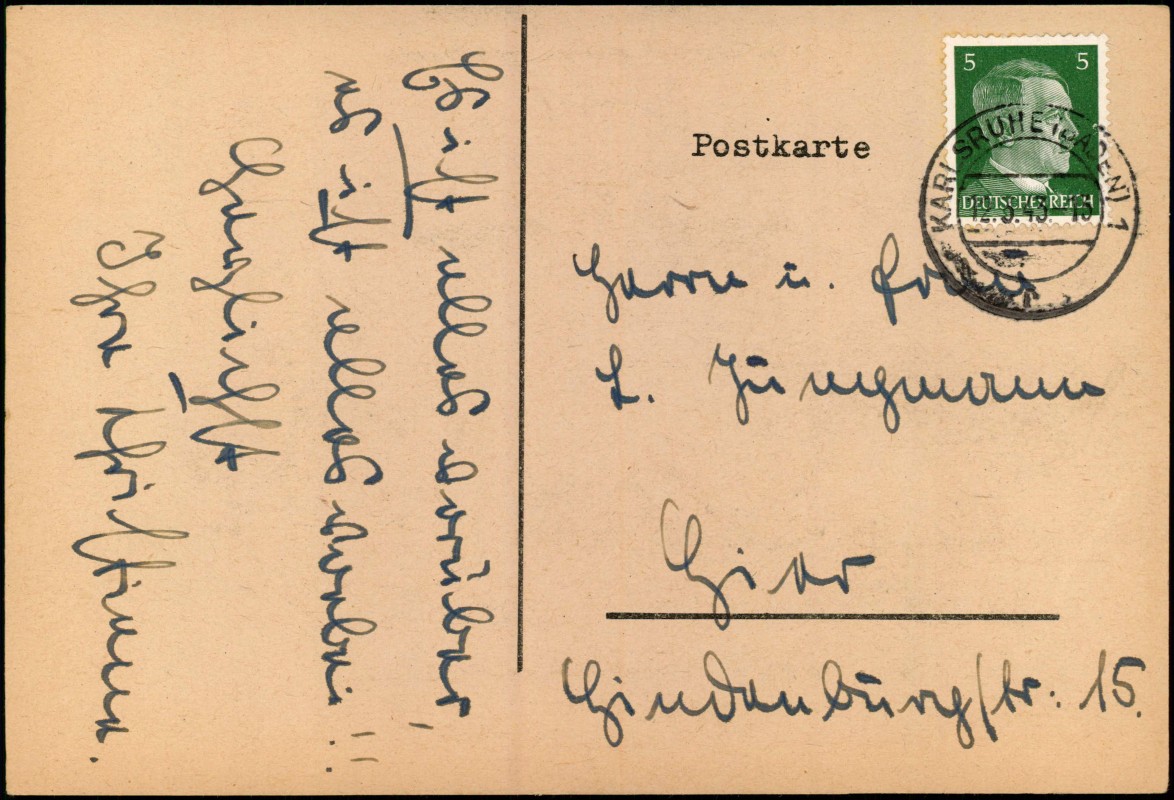 Es ist alles vorüber,
es ist alles vorbei!!
Herzlichst
Ihre Christiane.
5 5
DEUTSCHES REICH
KARLSRUHE (BADEN) 1
Postkarte
Herrn u. Frau
L. Jungmann
Hier
Hindenburgstr. 15.